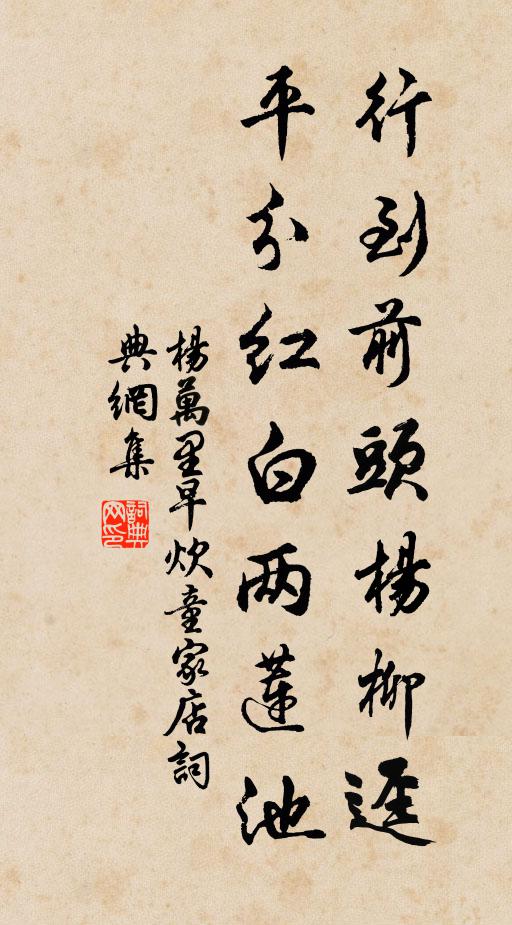 行到前頭楊柳逕
平分紅白两蓮池
楊萬里早炊童家店詞
典網集
詞典
网印